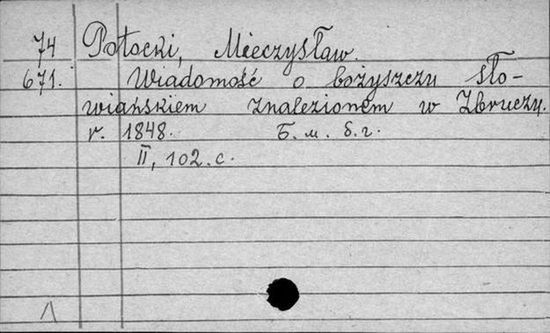 74 Potocki, Mieczysław.
671. Wiadomość o bożyszczu sło-
wiańskiem znalezionem w Zbruczu
r. 1848. Б. м. б. г.
II, 102. с.
Л